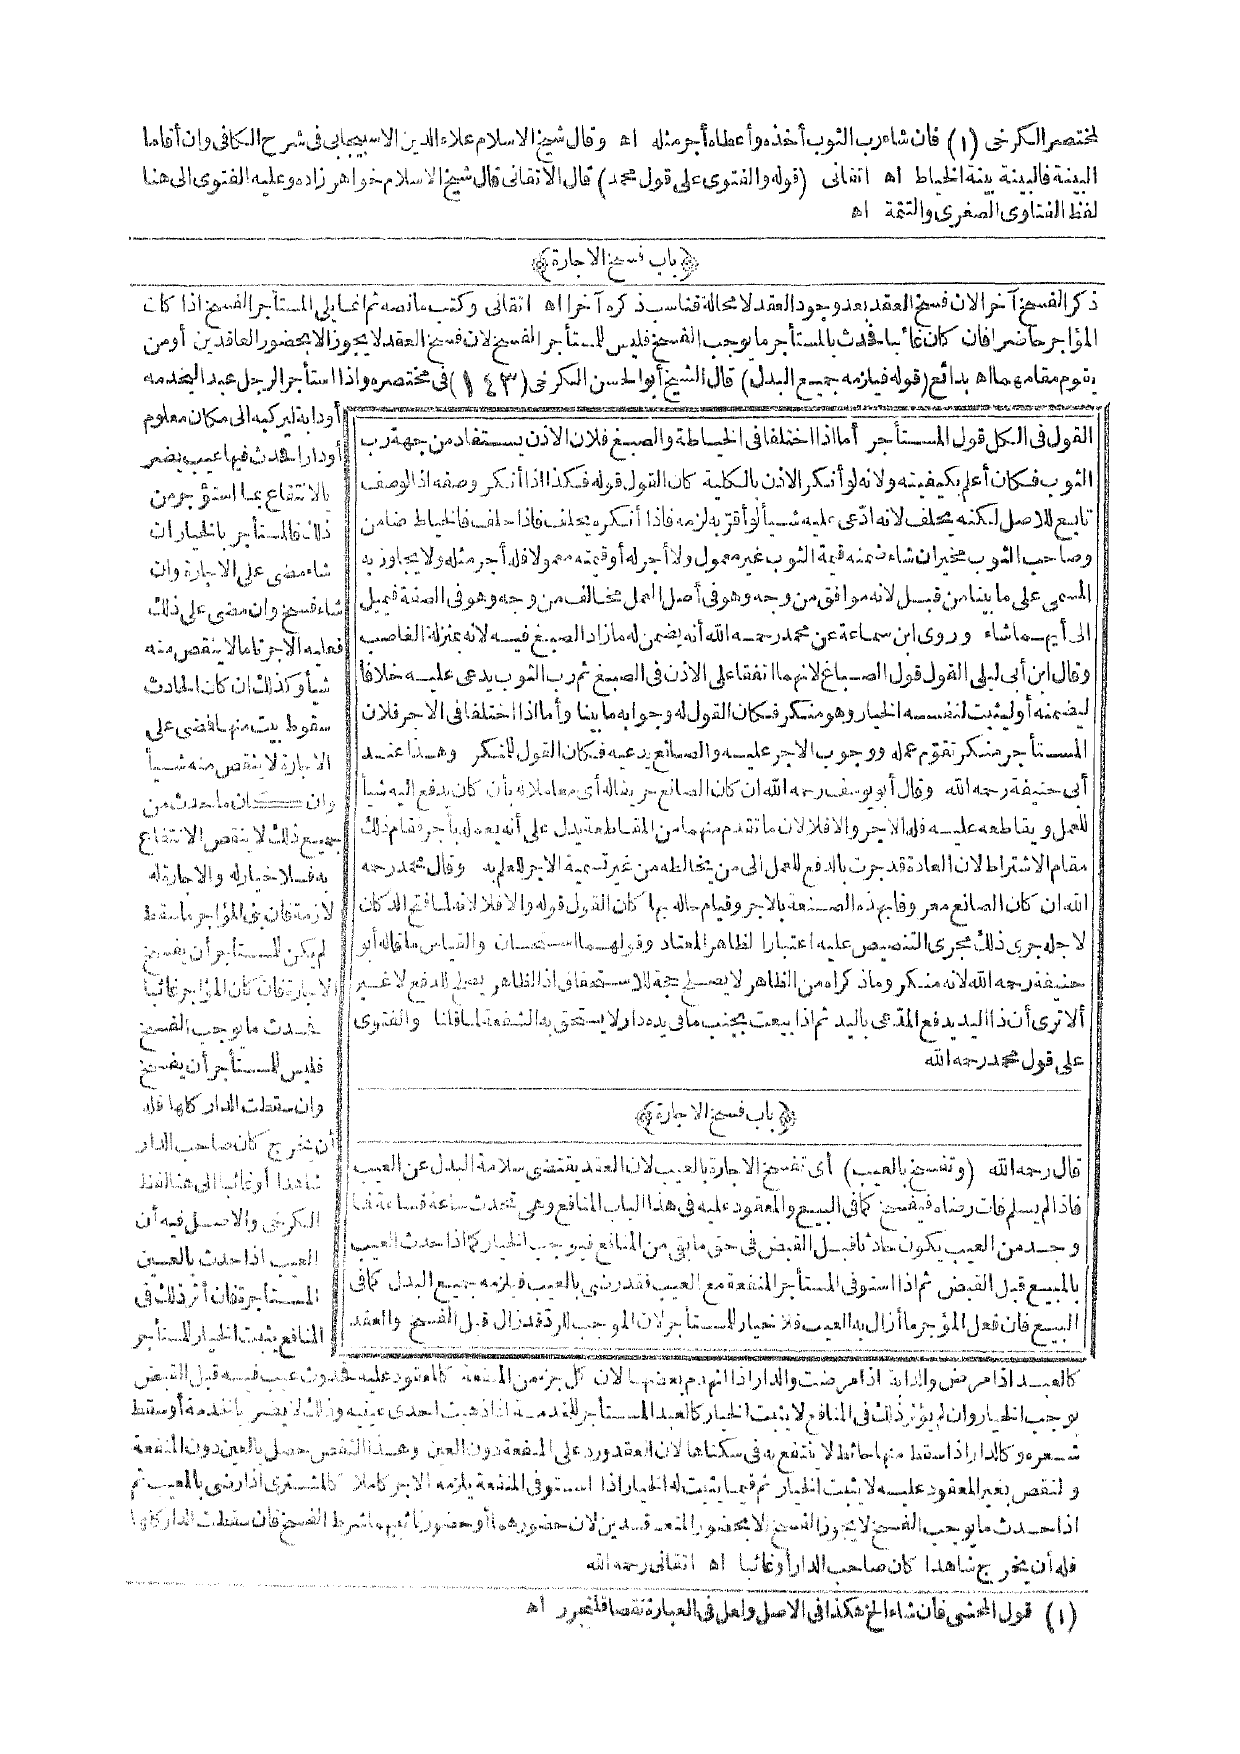 لمختصر الكرخى (١) فان شاء رب الثوب أخذه وأعطاه أجر مثله اه وقال شيخ الاسلام علاء الدين الاسبيجابى فى شرح الكافى وان أقاما
البينة فالبينة بينة الخياط اه اتقانى (قوله والفتوى على قول محمد) قال الاتقانى قال شيخ الاسلام خواهر زاده وعليه الفتوى الى هنا
لفظ الفتاوى الصغرى والتتمة اه
﴿باب فسخ الاجارة﴾
ذكر الفسخ آخرا لان فسخ العقد بعد وجود العقد لا محالة فناسب ذكره آخرا اه اتقانى وكتب ما نصه ثم انما يلى المستأجر الفسخ اذا كان
المؤاجر حاضرا فان كان غائبا فحدث بالمستأجر ما يوجب الفسخ فليس للمستأجر الفسخ لان فسخ العقد لا يجوز الا بحضور العاقدين أو من
يقوم مقامهما اه بدائع (قوله فيلزمه جميع البدل) قال الشيخ أبو الحسن الكرخى (١٤٣) فى مختصره واذا استأجر الرجل عبدا ليخدمه
أو دابة ليركبه الى مكان معلوم
أو دارا فحدث فيها عيب يضر
بالانتفاع بما استؤجر من
ذلك فالمستأجر بالخيار ان
شاء مضى على الاجارة وان
شاء فسخ وان مضى على ذلك
فعليه الاجر تاما لا ينقص منه
شيأ وكذلك ان كان الحادث
سقوط بيت منها فمضى على
الاجارة لا ينقص منه شيأ
وان كان ما حدث من
جميع ذلك لا ينقص الانتفاع
به فلا خيار له والاجارة له
لازمة فان بنى المؤاجر ما سقط
لم يكن للمستأجر أن يفسخ
الاجارة فان كان المؤاجر غائبا
فحدث ما يوجب الفسخ
فليس للمستأجر أن يفسخ
وان سقطت الدار كلها فله
أن يخرج كان صاحب الدار
شاهدا أو غائبا الى هنا لفظ
الكرخى والاصل فيه أن
العيب اذا حدث بالعين
المستأجرة فان أثر ذلك فى
المنافع يثبت الخيار للمستأجر
القول فى الكل قول المستأجر أما اذا اختلفا فى الخياطة والصبغ فلان الاذن يستفاد من جهة رب
الثوب فكان أعلم بكيفيته ولانه لو أنكر الاذن بالكلية كان القول قوله فكذا اذا أنكر وصفه اذ الوصف
تابع للاصل لكنه يحلف لانه ادعى عليه شيأ لو أقر به لزمه فاذا أنكره يحلف فاذا حلف فالخياط ضامن
وصاحب الثوب مخير ان شاء ضمنه قيمة الثوب غير معمول ولا أجر له أو قيمته معمولا فله أجر مثله ولا يجاوز به
المسمى على ما بينا من قبل لانه موافق من وجه وهو فى أصل العمل مخالف من وجه وهو فى الصفة فيميل
الى أيهما شاء وروى ابن سماعة عن محمد رحمه الله أنه يضمن له ما زاد الصبغ فيه لانه بمنزلة الغاصب
وقال ابن أبى ليلى القول قول الصباغ لانهما اتفقا على الاذن فى الصبغ ثم رب الثوب يدعى عليه خلافا
ليضمنه أو ليثبت لنفسه الخيار وهو منكر فكان القول له وجوابه ما بينا وأما اذا اختلفا فى الاجر فلان
المستأجر منكر تقوم عمله ووجوب الاجر عليه والصانع يدعيه فكان القول للمنكر وهذا عند
أبى حنيفة رحمه الله وقال أبو يوسف رحمه الله ان كان الصانع حريفا له أى معاملا له بأن كان يدفع اليه شيأ
للعمل ويقاطعه عليه فله الاجر والا فلا لان ما تقدم منهما من المقاطعة يدل على أنه يعمله بأجر فقام ذلك
مقام الاشتراط لان العادة قد جرت بالدفع للعمل الى من يخالطه من غير تسمية الاجر للعلم به وقال محمد رحمه
الله ان كان الصانع معروفا بهذه الصنعة بالاجر وقيام حاله بها كان القول قوله والا فلا لانه لما فتح الدكان
لاجله جرى ذلك مجرى التنصيص عليه اعتبارا لظاهر المعتاد وقولهما استحسان والقياس ما قاله أبو
حنيفة رحمه الله لانه منكر وما ذكراه من الظاهر لا يصلح حجة للاستحقاق اذ الظاهر يصلح للدفع لا غير
ألا ترى أن ذا اليد يدفع المدعى باليد ثم اذا بيعت بجنب ما فى يده دار لا يستحق به الشفعة لما قلنا والفتوى
على قول محمد رحمه الله
﴿باب فسخ الاجارة﴾
قال رحمه الله (وتفسخ بالعيب) أى تفسخ الاجارة بالعيب لان العقد يقتضى سلامة البدل عن العيب
فاذا لم يسلم فات رضاه فيفسخ كما فى البيع والمعقود عليه فى هذا الباب المنافع وهى تحدث ساعة فساعة فما
وجد من العيب يكون حادثا قبل القبض فى حق ما بقى من المنافع فيوجب الخيار كما اذا حدث العيب
بالمبيع قبل القبض ثم اذا استوفى المستأجر المنفعة مع العيب فقد رضى بالعيب فيلزمه جميع البدل كما فى
البيع فان فعل المؤجر ما أزال به العيب فلا خيار للمستأجر لان الموجب للرد قد زال قبل الفسخ والعقد
كالعبد اذا مرض والدابة اذا مرضت والدار اذا انهدم بعضها لان كل جزء من المنفعة كالمعقود عليه فحدوث عيب فيه قبل القبض
يوجب الخيار وان لم يؤثر ذلك فى المنافع لا يثبت الخيار كالعبد المستأجر للخدمة اذا ذهبت احدى عينيه وذلك لا يضر بالخدمة أو سقط
شعره وكالدار اذا سقط منها حائط لا ينتفع به فى سكناها لان العقد ورد على المنفعة دون العين وهذا النقص حصل بالعين دون المنفعة
والنقص بغير المعقود عليه لا يثبت الخيار ثم فيما يثبت له الخيار اذا استوفى المنفعة يلزمه الاجر كاملا كالمشترى اذا رضى بالعيب ثم
اذا حدث ما يوجب الفسخ لا يجوز الفسخ الا بحضور المتعاقدين لان حضورهما أو حضور نائبهما شرط الفسخ فان سقطت الدار كلها
فله أن يخرج شاهدا كان صاحب الدار أو غائبا اه اتقانى رحمه الله
(١) قول المحشى فان شاء الخ هكذا فى الاصل ولعل فى العبارة نقصا فليحرر اه